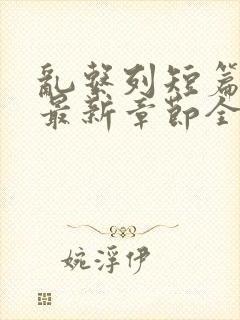 亂繫列短篇
最新章節全
婉浮伊